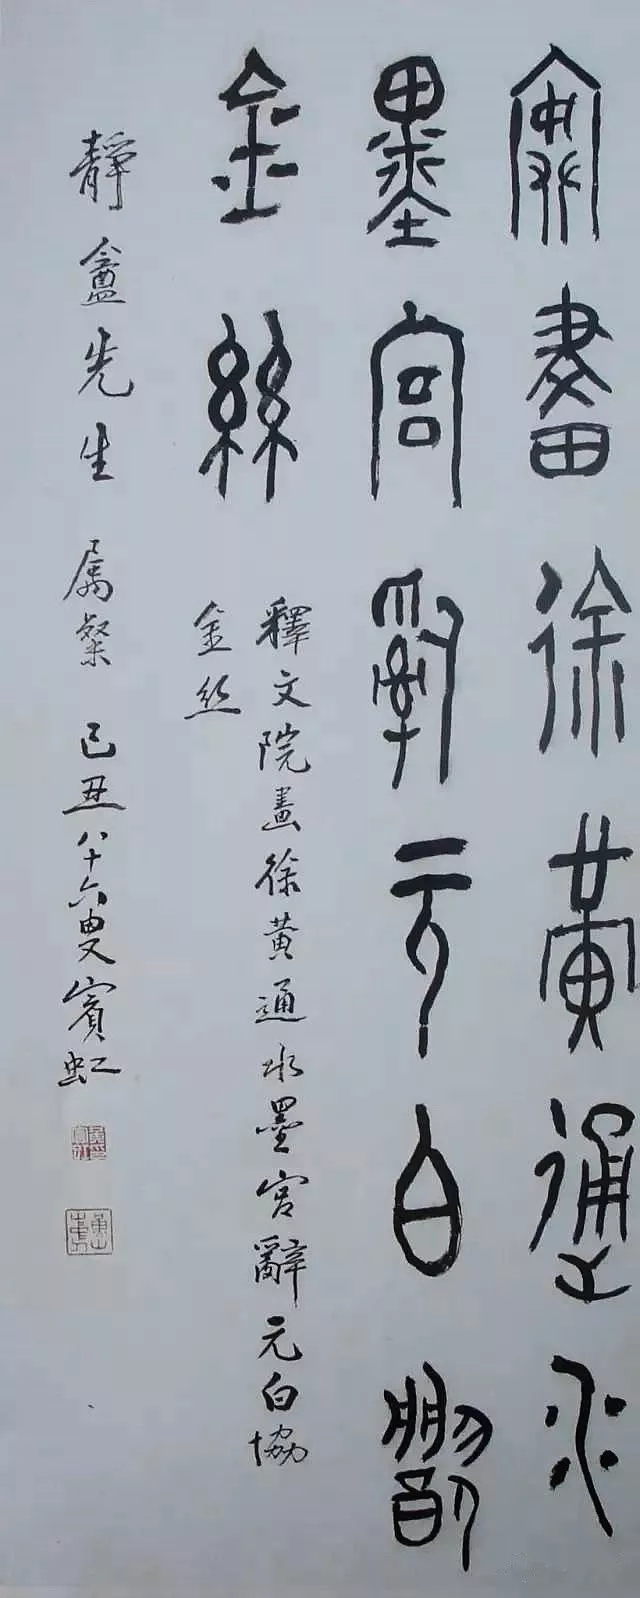 院畫徐黃通水
墨宮辭元白協
金絲
釋文院畫徐黃通水墨宮辭元白協
金丝
靜盦先生 属粲 己丑八十六叟賓虹